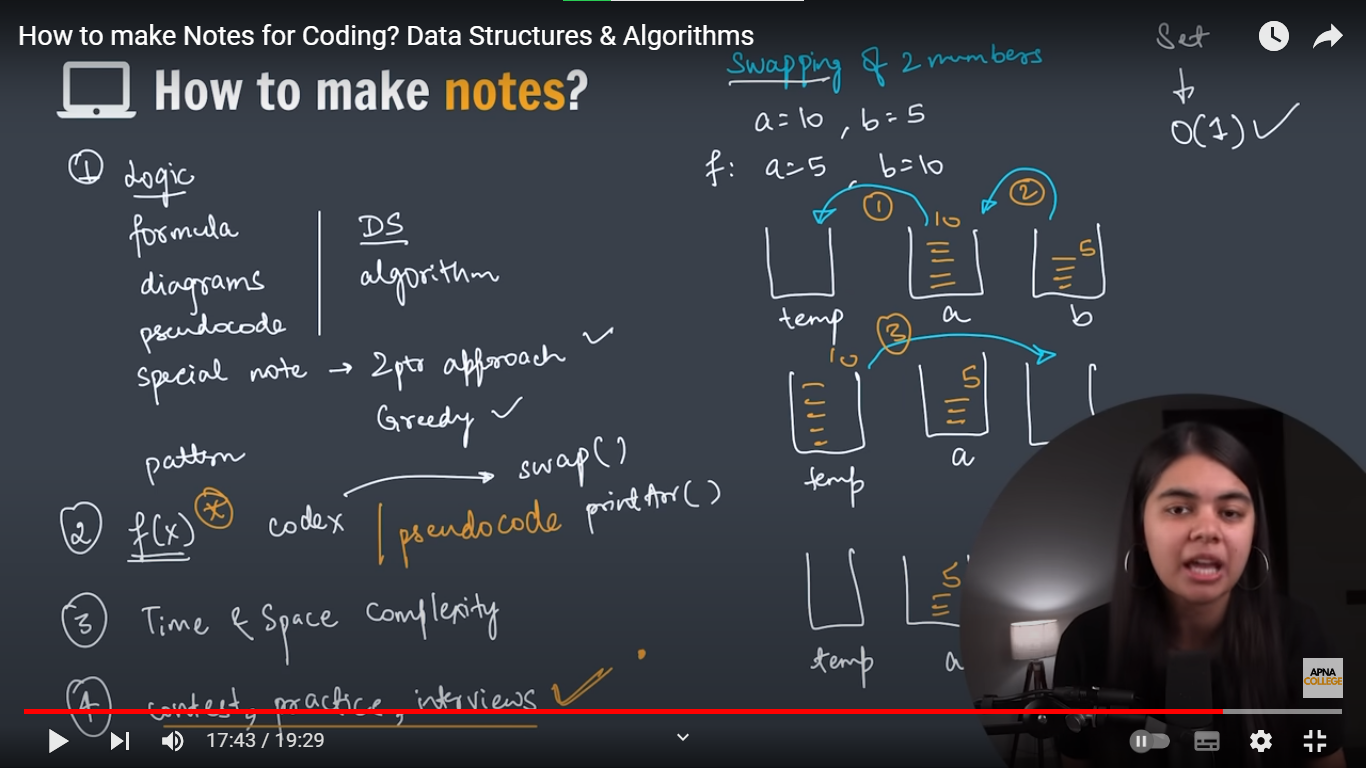 How to make Notes for Coding? Data Structures & Algorithms
How to make notes?
1 Logic
formula
diagrams
pseudocode
DS
algorithm
special note → 2ptr approach ✓
Greedy ✓
pattern
2 f(x) * codex | pseudocode
swap()
printArr()
3 Time & Space Complexity
4 contest, practice, interviews ✓
Swapping of 2 numbers
a=10, b=5
f: a=5, b=10
1 2
10 5
temp a b
3
10 5
temp a
5
temp a
Set
O(1) ✓
APNA
COLLEGE
17:43 / 19:29